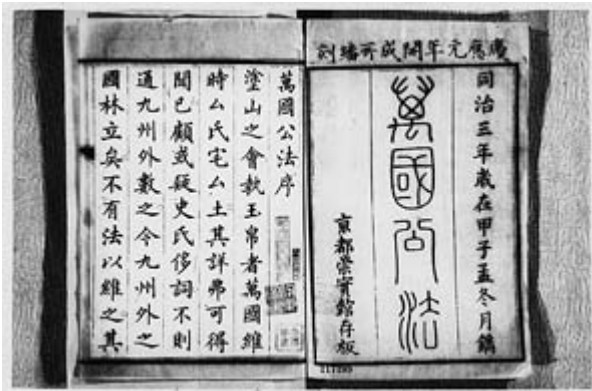 慶應元年開成所繙刻
同治三年歲在甲子孟冬月鐫
萬國公法
京都崇實館存板
萬國公法序
塗山之會執玉帛者萬國維
時厶氏宅厶土其詳弗可得
聞已顧或疑史氏侈詞不則
通九州外數之今九州外之
國林立矣不有法以維之其